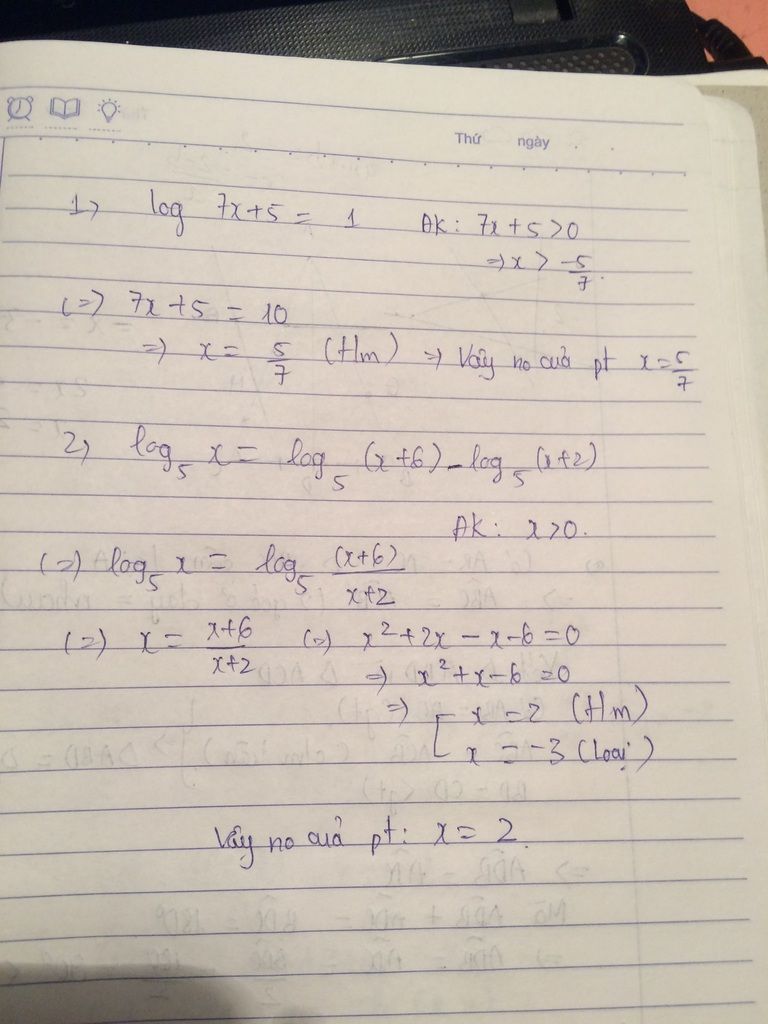 Thứ ngày
1, log 7x+5 = 1 ĐK: 7x+5>0
=> x > -5/7.
(=) 7x+5 = 10
=> x = 5/7 (t/m) => Vậy no cuả pt x=5/7
2, log₅ x = log₅ (x+6) - log₅ (x+2)
ĐK: x>0.
(=) log₅ x = log₅ (x+6)/x+2
(=) x = x+6/x+2 (=) x²+2x-x-6=0
=> x²+x-6=0
=> [ x=2 (t/m)
x = -3 (loại)
Vậy no cuả pt: x = 2.